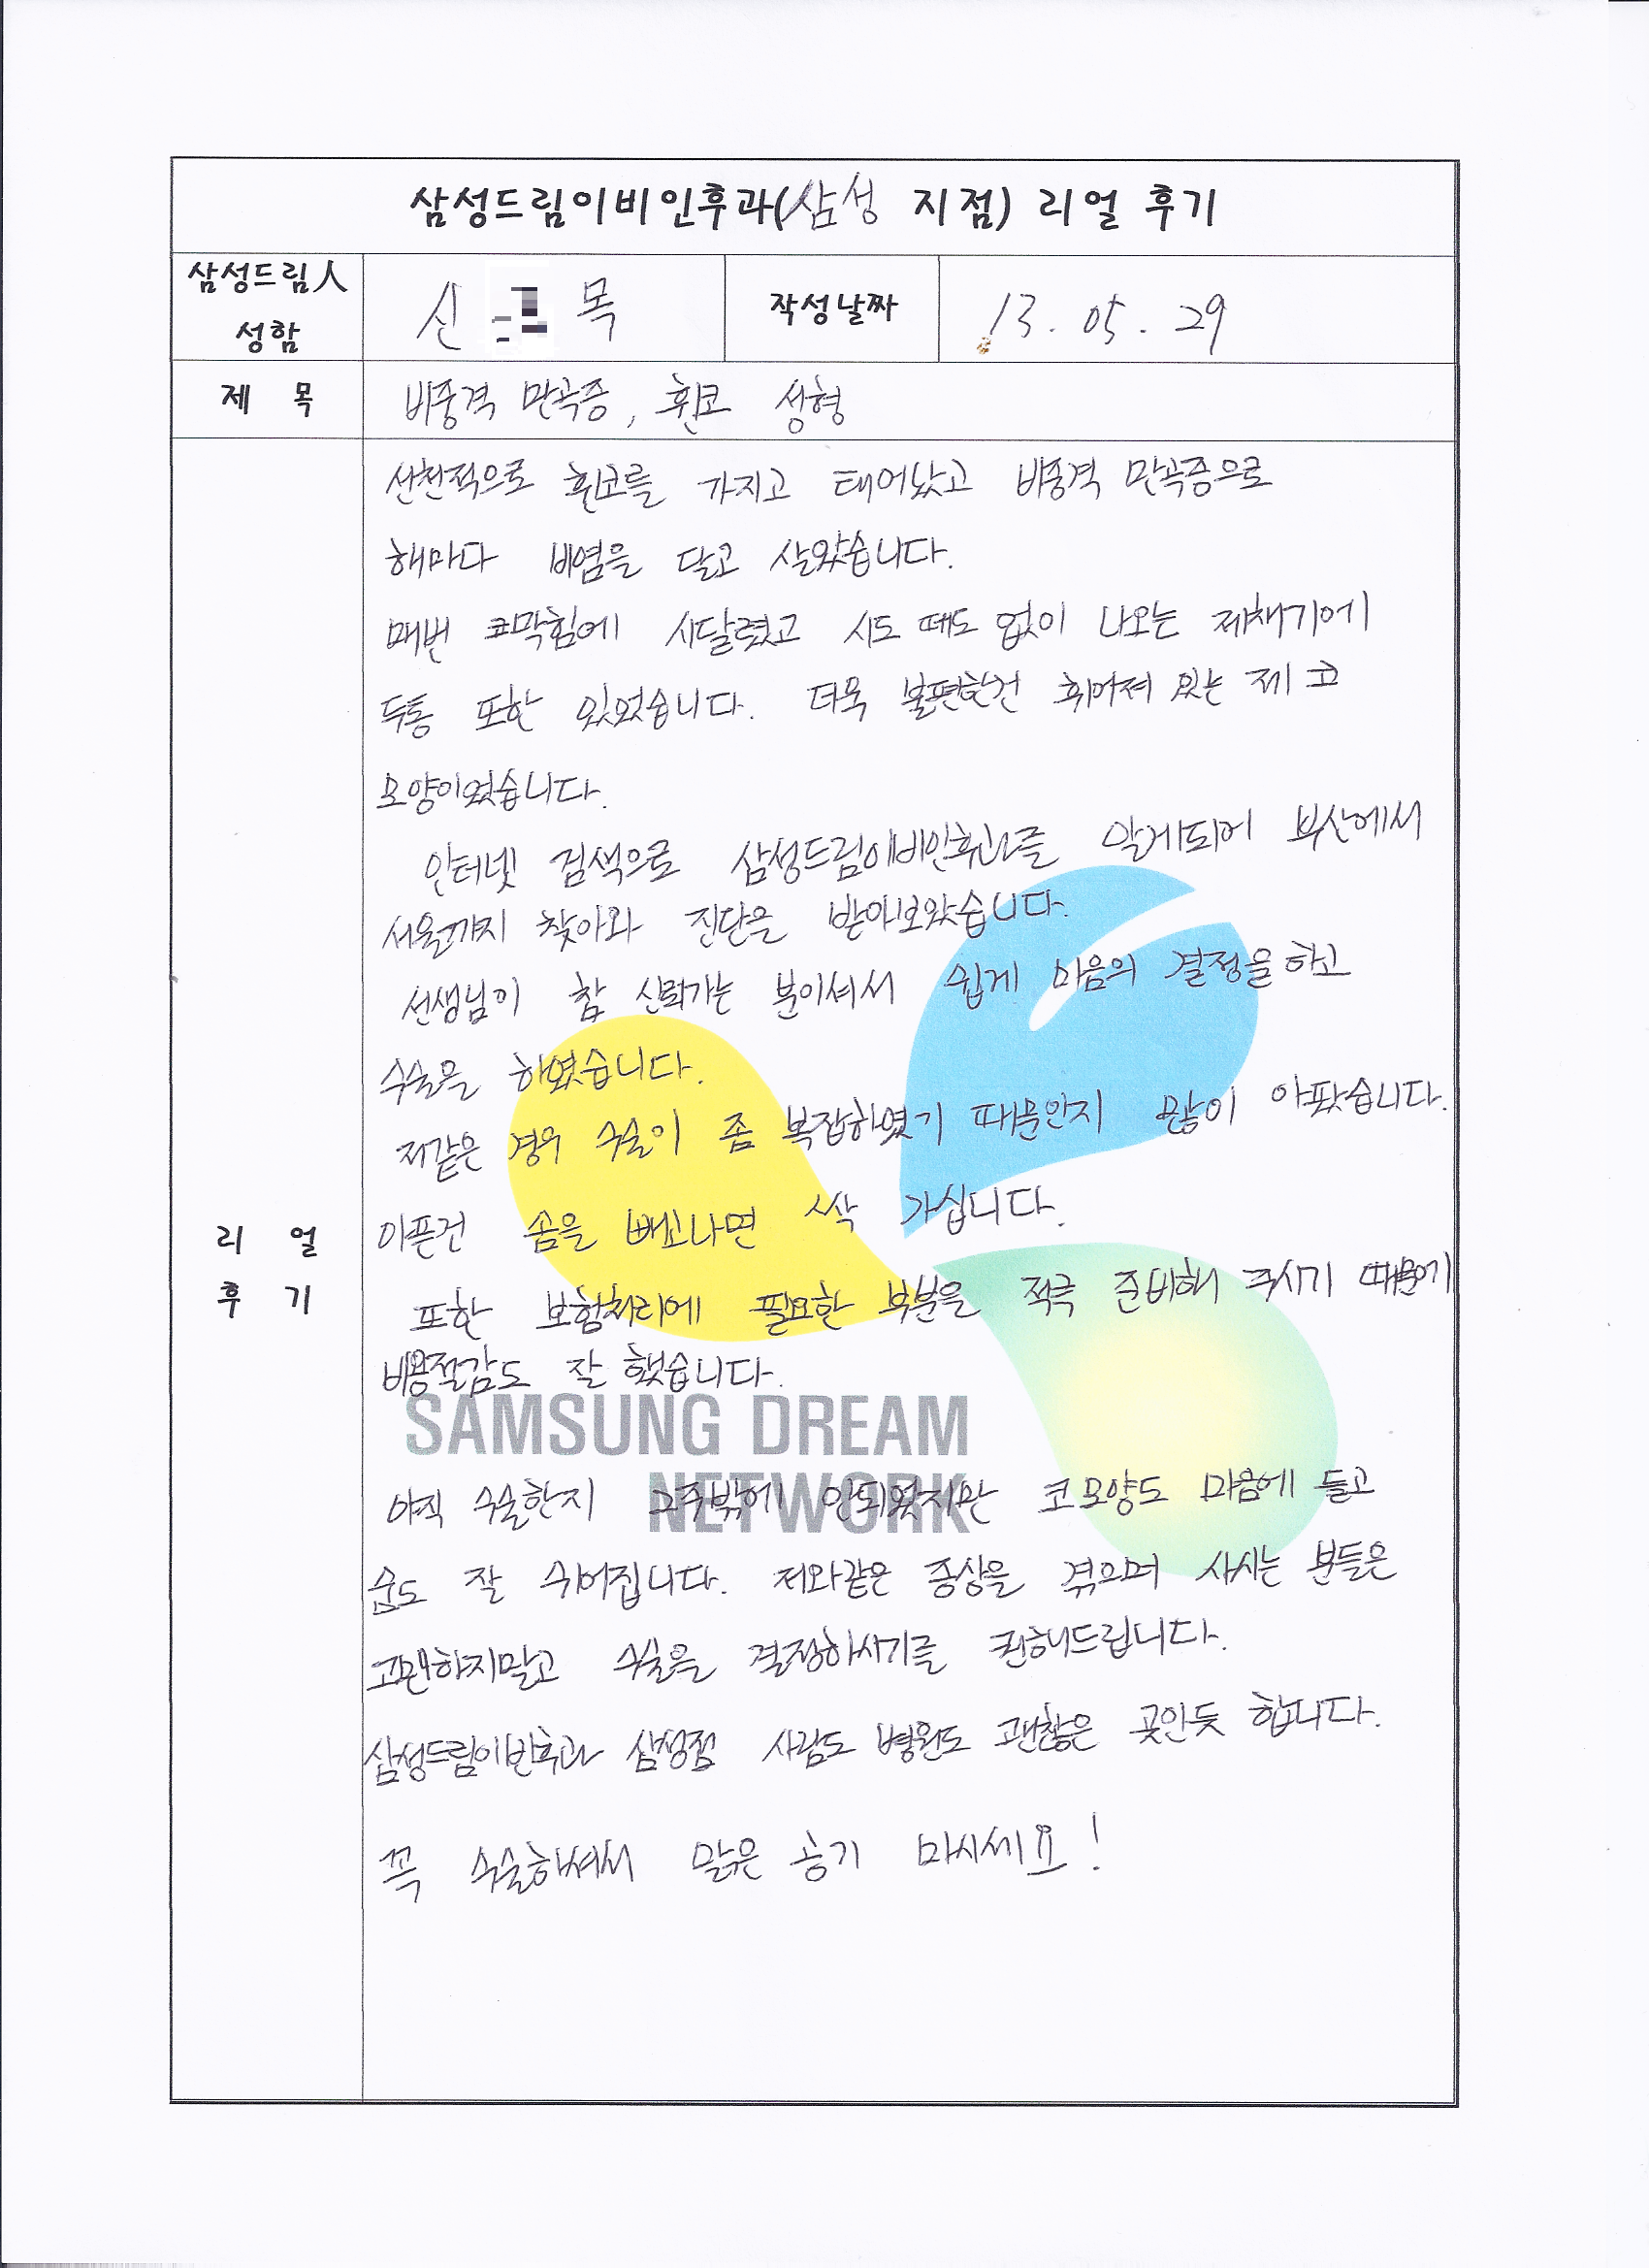 삼성드림이비인후과(삼성 지점) 리얼 후기
삼성드림人 성함
신 목
작성날짜
13. 05. 29
제 목
비중격 만곡증, 휜코 성형
리 얼 후 기
선천적으로 휜코를 가지고 태어났고 비중격 만곡증으로
해마다 비염을 달고 살았습니다.
매번 코막힘에 시달렸고 시도 때도 없이 나오는 재채기에
두통 또한 있었습니다. 더욱 불편한건 휘어져 있는 제 코
모양이었습니다.
인터넷 검색으로 삼성드림이비인후과를 알게되어 부산에서
서울까지 찾아와 진단을 받아보았습니다.
선생님이 참 신뢰가는 분이셔서 쉽게 마음의 결정을 하고
수술을 하였습니다.
저같은 경우 수술이 좀 복잡하였기 때문인지 많이 아팠습니다.
아픈건 솜을 빼고나면 싹 가십니다.
또한 보험처리에 필요한 부분을 적극 준비해 주시기 때문에
비용절감도 잘 했습니다.
SAMSUNG DREAM
NETWORK
아직 수술한지 2주밖에 안되었지만 코 모양도 마음에 들고
숨도 잘 쉬어집니다. 저와같은 증상을 겪으며 사시는 분들은
고민하지말고 수술을 결정하시기를 권해드립니다.
삼성드림이빈후과 삼성점 사람도 병원도 괜찮은 곳인듯 합니다.
꼭 수술하셔서 맑은 공기 마시세요!